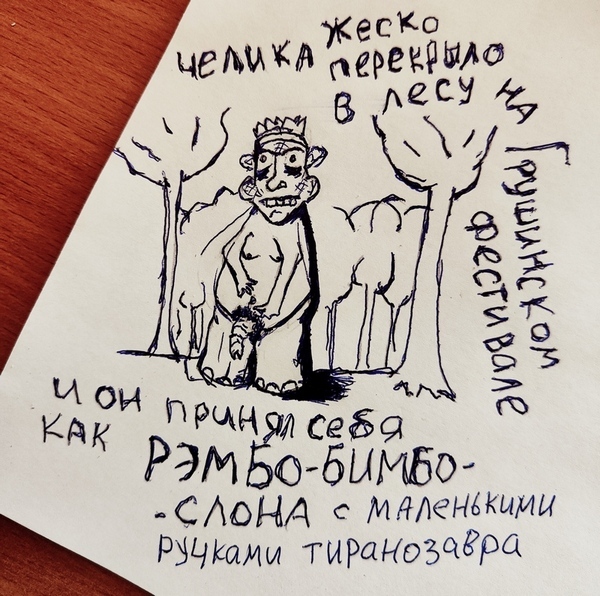 ЧЕЛИКА ЖЕСКО
ПЕРЕКРЫЛО
В ЛЕСУ НА ГРУШИНСКОМ
ФЕСТИВАЛЕ
И ОН ПРИНЯЛ СЕБЯ
КАК РЭМБО-БИМБО-
-СЛОНА С МАЛЕНЬКИМИ
РУЧКАМИ ТИРАНОЗАВРА